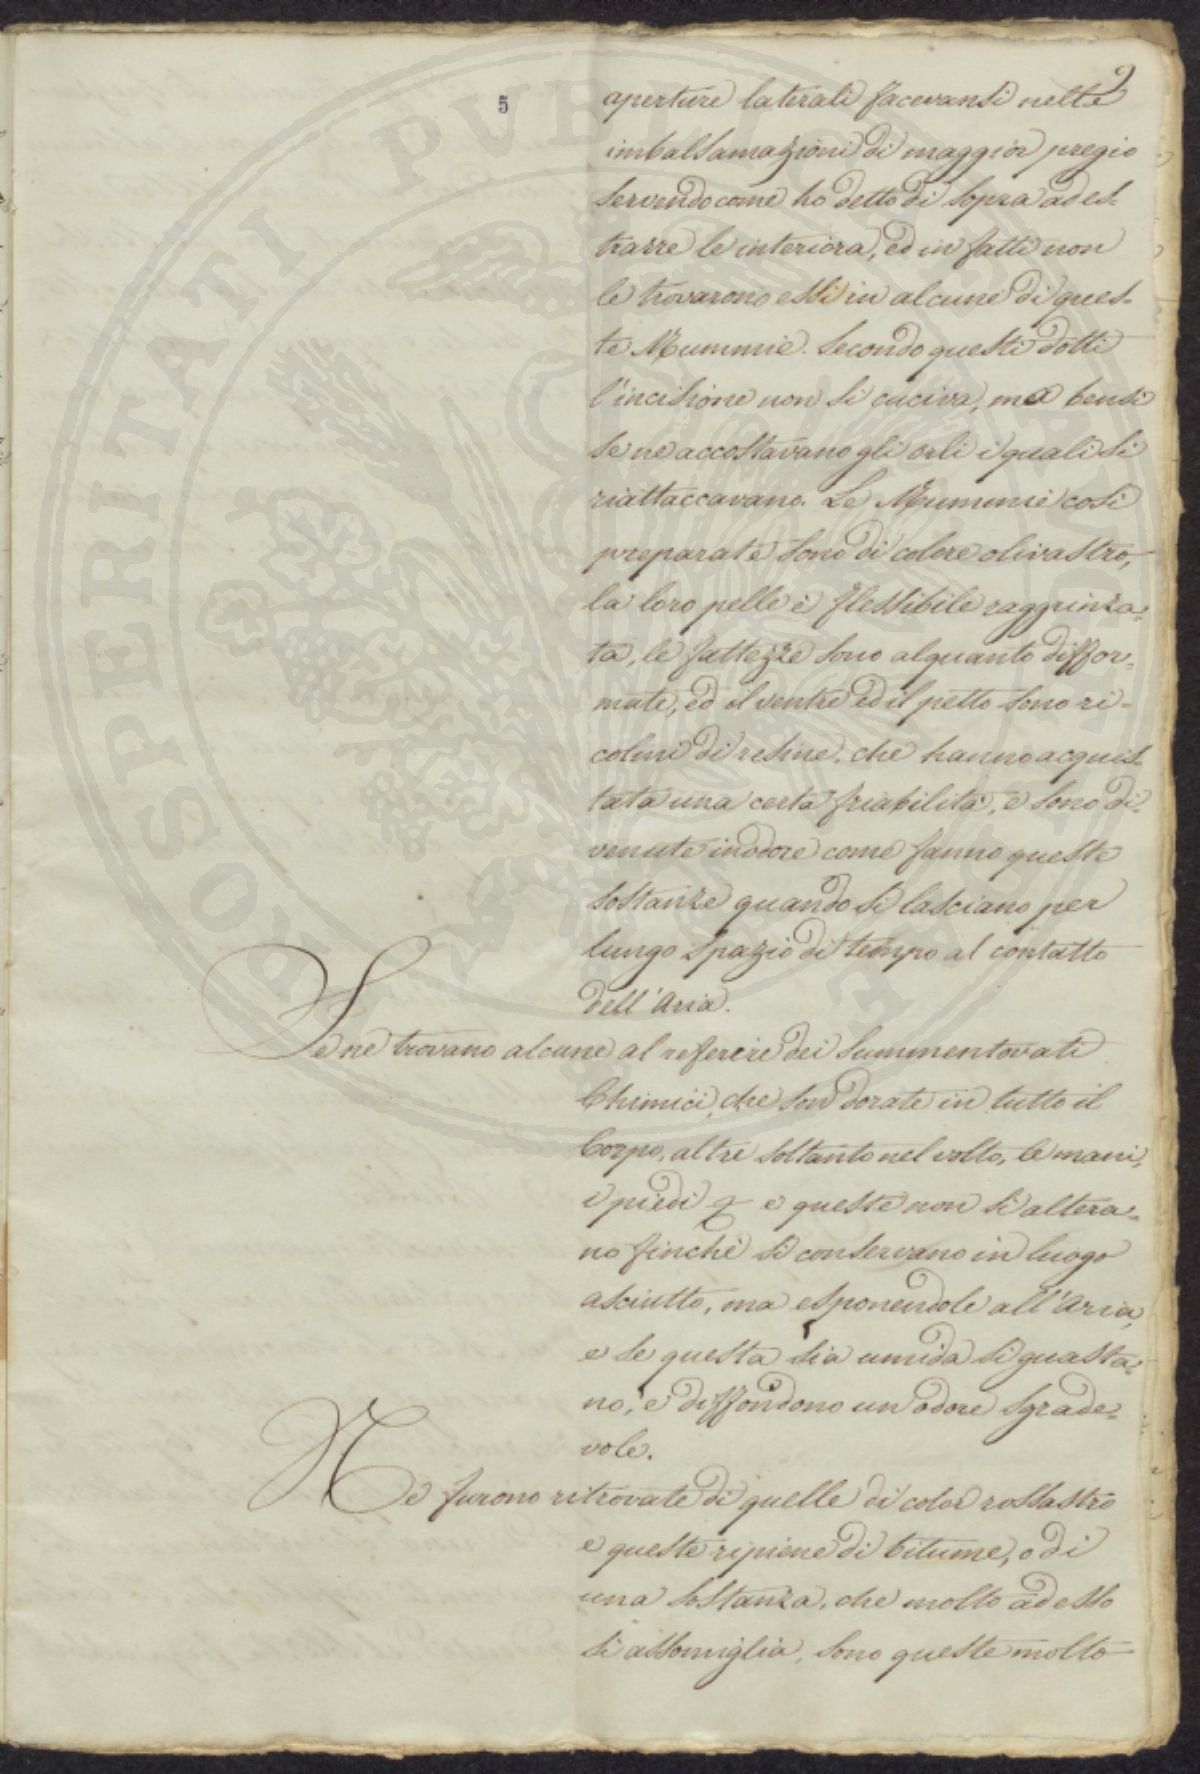 9
5
aperture laterali facevansi nelle
imbalsamazioni di maggior pregio
servendo come ho detto di sopra ad es-
trarre le interiora, ed in fatti non
le trovarono essi in alcune di ques-
te Mummie. Secondo questi dotti
l'incisione non si cuciva, ma bensi
se ne accostavano gli orli i quali si
riattaccavano. Le Mummie cosi
preparate sono di colore olivastro,
la loro pelle è flessibile raggrinza=
ta, le fattezze sono alquanto diffor=
mate, ed il ventre ed il petto sono ri-
colmi di resine, che hanno acquis-
tata una certa friabilità, e sono di-
venute inodore come fanno queste
sostanze quando si lasciano per
lungo spazio di tempo al contatto
dell'Aria.
Se ne trovano alcune al referire dei summentovati
Chimici, che son dorate in tutto il
Corpo, altre soltanto nel volto, le mani,
i piedi e queste non si altera=
no finchè si conservano in luogo
asciutto, ma esponendole all'Aria,
e se questa sia umida si guasta=
no, e diffondono un odore sgrade=
vole.
Ne furono ritrovate di quelle di color rossastro
e queste ripiene di bitume, o di
una sostanza, che molto ad esso
si assomiglia, sono queste molto
PROSPERITATI PUBLICAE